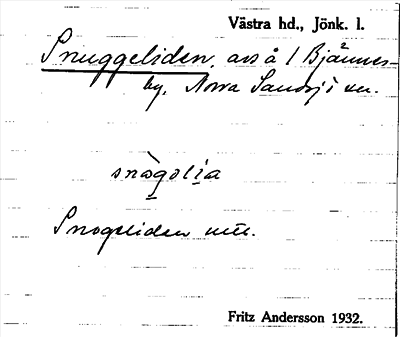 Västra hd., Jönk. l.
Snuggeliden, avs å 1 Bjännes-
by, Norra Sandsjö sn.
snògolia
Snogeliden
Fritz Andersson 1932.